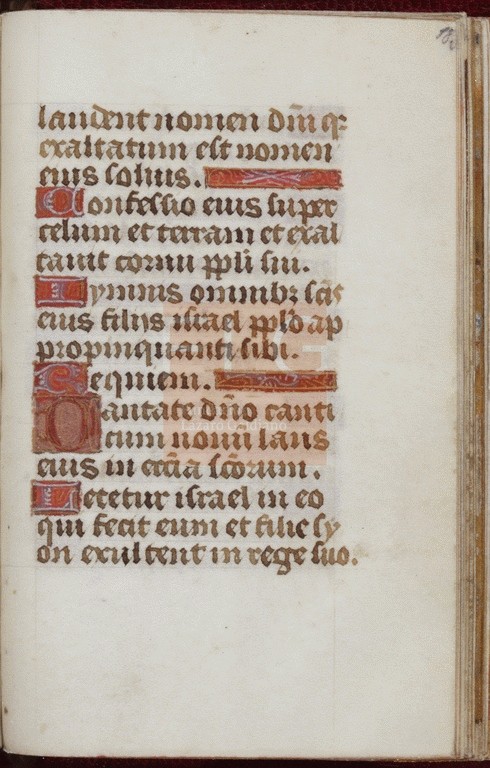 laudent nomen dñi q̃
exaltatum est nomen
eius solius.
Confessio eius super
celum et terram et exal
tauit cornu ppli sui.
Ymnus omnibꝫ scis
eius filijs israel pplo ap
propinquanti sibi.
Requiem.
Cantate dño canti
cum nouu laus
eius in eccia scorum.
Letetur israel in eo
qui fecit eum et filie sy
on exultent in rege suo.
Lázaro Galdiano